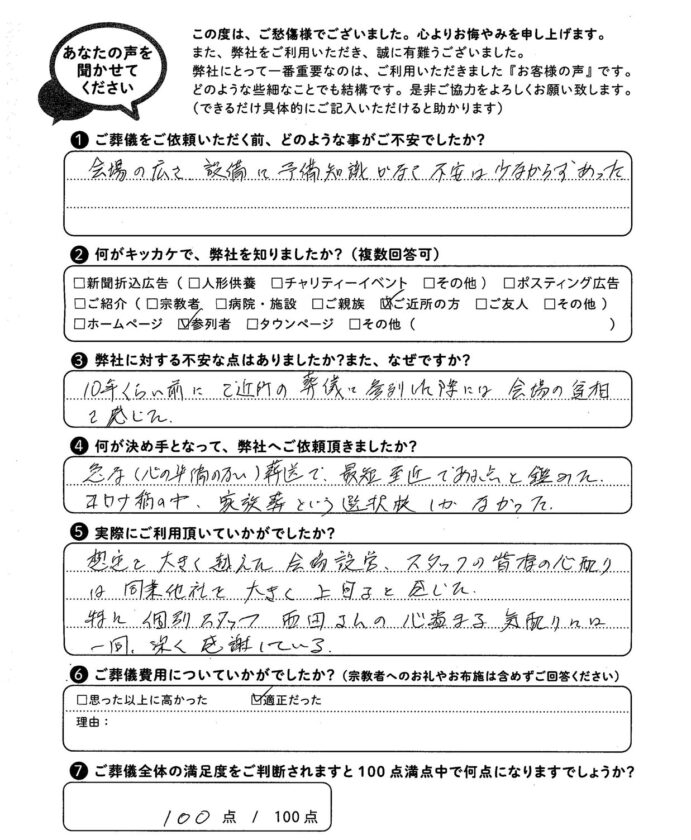 あなたの声を
聞かせて
ください
この度は、ご愁傷様でございました。心よりお悔やみを申し上げます。
また、弊社をご利用いただき、誠に有難うございました。
弊社にとって一番重要なのは、ご利用いただきました『お客様の声』です。
どのような些細なことでも結構です。是非ご協力をよろしくお願い致します。
（できるだけ具体的にご記入いただけると助かります）
❶ ご葬儀をご依頼いただく前、どのような事がご不安でしたか？
会場の広さ、設備に予備知識がなく不安は少なからずあった
❷ 何がキッカケで、弊社を知りましたか？（複数回答可）
□新聞折込広告（□人形供養 □チャリティーイベント □その他）□ポスティング広告
□ご紹介（□宗教者 □病院・施設 □ご親族 ☑ご近所の方 □ご友人 □その他）
□ホームページ ☑参列者 □タウンページ □その他（ ）
❸ 弊社に対する不安な点はありましたか？また、なぜですか？
10年くらい前にご近所の葬儀に参列した際には会場の貧相
を感じた.
❹ 何が決め手となって、弊社へご依頼頂きましたか？
急な（心の準備のない）葬送で、最短至近である点を鑑みた.
コロナ禍の中、家族葬という選択肢しかなかった.
❺ 実際にご利用頂いていかがでしたか？
想定を大きく越えた会場設営、スタッフの皆様の心配り
は同業他社を大きく上回ると感じた.
特に個別スタッフ西田さんの心温まる気配りには
一同、深く感謝している.
❻ ご葬儀費用についていかがでしたか？（宗教者へのお礼やお布施は含めずご回答ください）
□思った以上に高かった ☑適正だった
理由：
❼ ご葬儀全体の満足度をご判断されますと100点満点中で何点になりますでしょうか？
100 点 / 100点